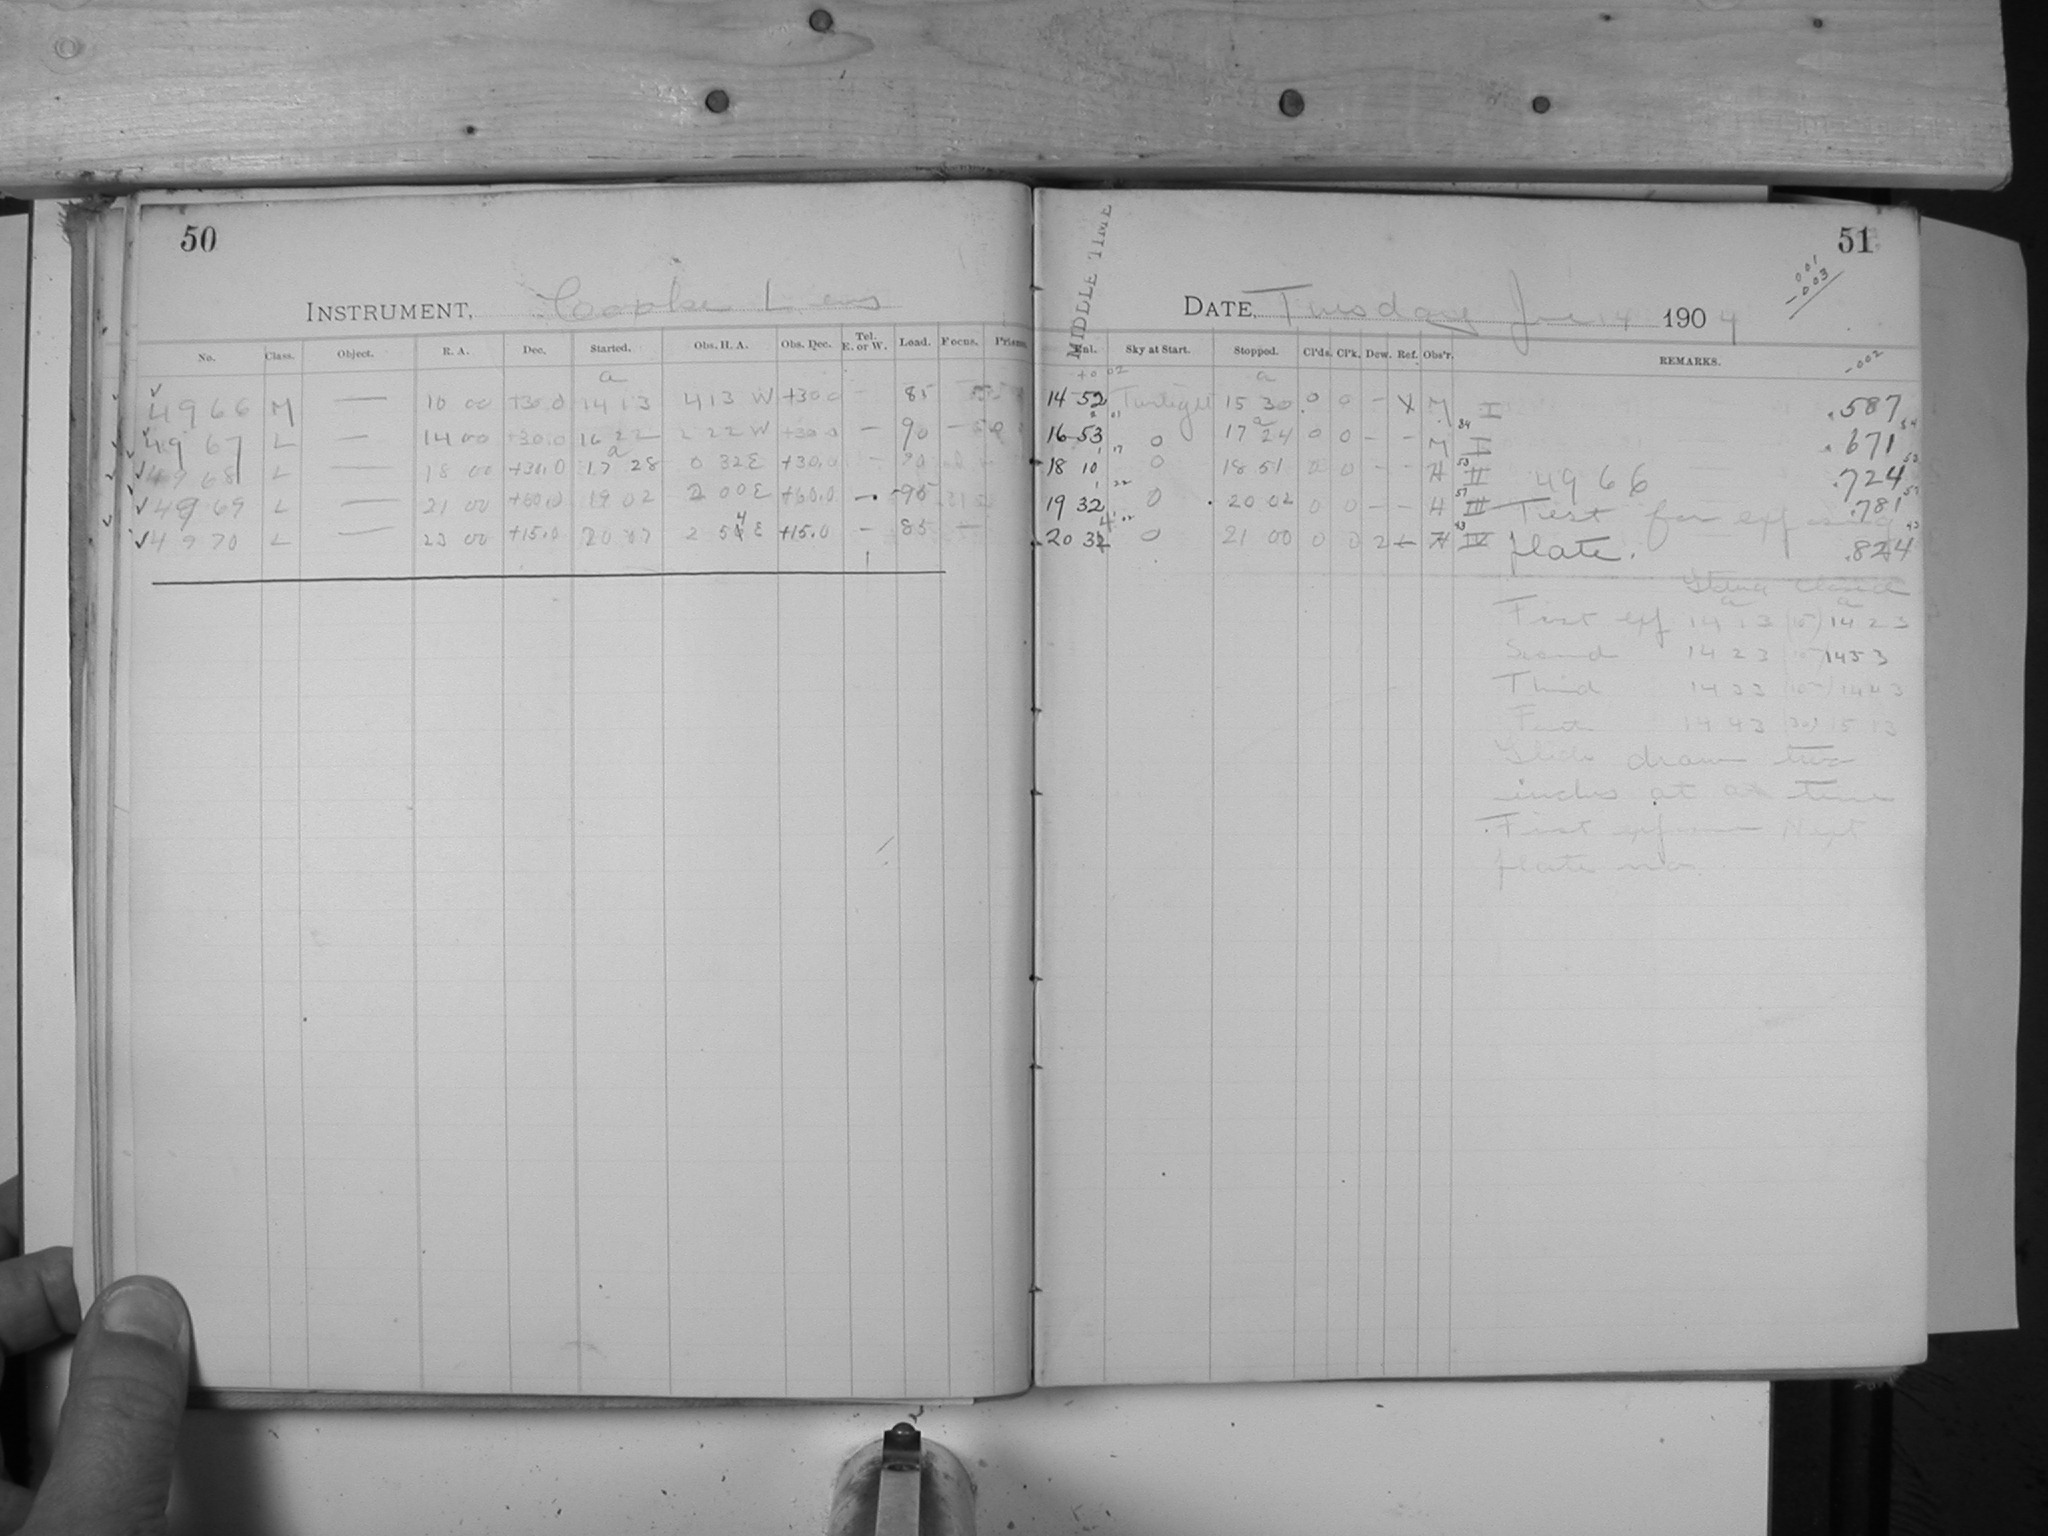 50
INSTRUMENT, Cooke Lens
No. Class. Object. R. A. Dec. Started. Obs. H. A. Obs. Dec. Tel. E. or W. Load. Focus. Prism
a
4966 M — 10 00 +30.0 14 13 4 13 W +30.0 — 85
4967 L — 14 00 +30.0 16 22 2 22 W +30.0 — 90
a
4968 L — 18 00 +30.0 17 28 0 32 E +30.0 — 90
4969 L — 21 00 +60.0 19 02 2 00 E +60.0 — 95
4970 L — 23 00 +15.0 20 07 2 54 E +15.0 — 85 —
51
MIDDLE TIME
001
-003
DATE, Tuesday June 14 1904
Sky at Start. Stopped. Cl'ds. Cl'k. Dew. Ref. Obs'r. REMARKS.
-002
+0 02 a
14 52 Twilight 15 30 0 0 — X M I .587
16 53 0 17 24 0 0 — — M I .671
18 10 0 18 51 0 0 — — H II 4966 .724
19 32 0 20 02 0 0 — — H III Test for exposing .781
20 34 0 21 00 0 0 2 — H IV plate. .824
Started Closed
First exp 14 13 (10) 14 23
Second 14 23 (10) 14 33
Third 14 33 (10) 14 43
14 43 (30) 15 13
Slide drawn two
inches at a time
First exposure Next
plate no.